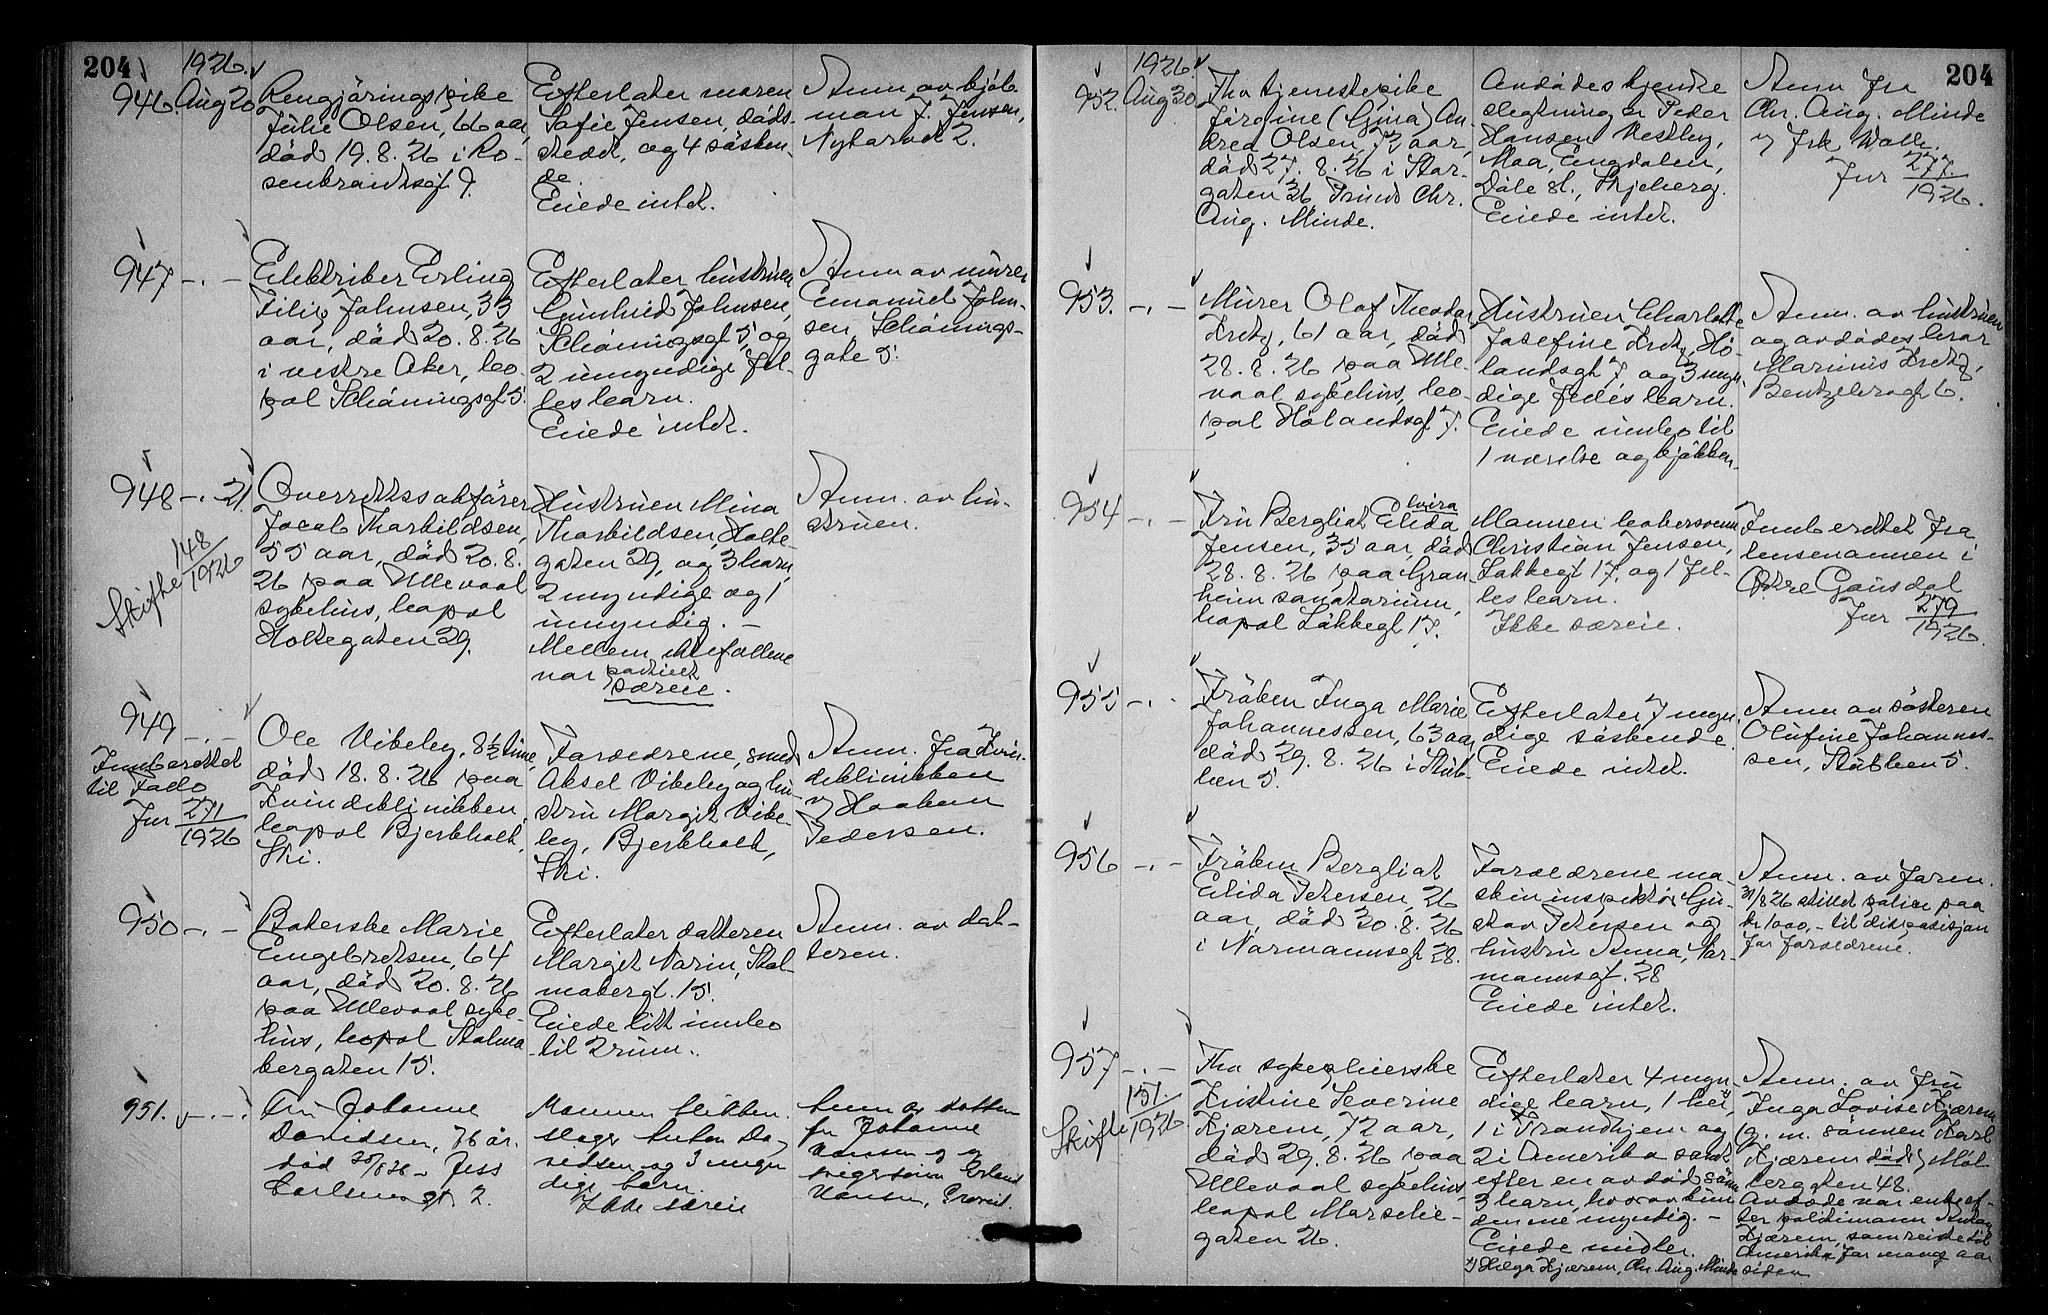 204
1926.
946. Aug 20
Rengjöringspike
Julie Olsen, 66 aar,
död 19.8.26 i Ro-
senkrantzgt 9.
Efterlater moren
Sofie Jensen, döds-
stedet, og 4 sösken-
de.
Eiede intet.
Anm. av kjöb-
man J. Jensen,
Nytorvet 2.
947 -.-
Elektriker Erling
Filip Johnsen, 33
aar, död 20.8.26
i vestre Aker, bo-
pæl Schöningsgt 5.
Efterlater hustruen
Gunhild Johnsen,
Schöningsgt 5, og
2 umyndige fel-
les barn.
Eiede intet.
Anm av murer
Emanuel John-
sen, Schönings-
gate 5.
948 -. 21.
Skifte 148/1926
Overretssakförer
Jacob Thorkildsen,
55 aar, död 20.8.
26 paa Ullevaal
sykehus, bopæl
Holtegaten 29.
Hustruen Mina
Thorkildsen, Holte-
gaten 29, og 3 barn,
2 myndige og 1
umyndig. -
Mellem ektefolkene
var partielt
særeie.
Anm. av hu-
struen.
949 -.-
Innberettet
til Follo
Jnr 271/1926
Ole Vibeby, 8½ time,
död 18.8.26 paa
Kvindeklinikken,
bopæl Bjerkholt,
Ski.
Forældrene, smed
Aksel Vibeby og hu-
stru Margit Vibe-
by, Bjerkholt,
Ski.
Anm. fra Kvin-
deklinikken
v/ Haakon
Pedersen.
950 -.-
Bakerske Marie
Engebretsen, 64
aar, död 20.8.26
paa Ullevaal syke-
hus, bopæl Stolma-
kergaten 15.
Efterlater datteren
Margit Narin, Stol-
makergt. 15.
Eiede litt innbo
til 2 rum.
Anm. av dat-
teren.
951. -.-
Fru Johanne
Davidsen, 76 år.
död 20/8 26 - Jess
Carlsens gt. 2.
Mannen blikken-
slager Anton Da-
vidsen og 3 myn-
dige barn.
Ikke særeie
Anm av datter
fru Johanne
Hansen og
svigersönn Erland
Hansen,
204
1926.
952. Aug 30.
Fhv tjenestepike
Jörgine (Gina) An-
drea Olsen, 72 aar,
död 27.8.26 i Stor-
gaten 36, Trinds Chr.
Aug. Minde.
Avdödes kjendte
slektning er Peder
Hansen Vestby,
Moa, Engdalen,
Dale st., Skjeberg.
Eiede intet.
Anm fra
Chr. Aug. Minde
v/ frk Wolle.
Jnr 277./1926.
953. -.-
Murer Olaf Theodor
Kretz, 61 aar, död
28.8.26 paa Ulle-
vaal sykehus, bo-
pæl Hölandsgt 7.
Hustruen Charlotte
Josefine Kretz, Hö-
landsgt 7 og 3 myn-
dige felles barn.
Eiede innbo til
1 værelse og kjökken.
Anm. av hustruen
og avdödes bror
Marinius Kretz,
Bentzebrogt 6.
954 -.-
Fru Bergliot Elvira Elida
Jensen, 35 aar, död
28.8.26 paa Gran-
heim sanatorium,
bopæl Lakkegt 17.
Mannen kobersvenn
Christian Jensen,
Lakkegt 17, og 1 fel-
les barn.
Ikke særeie.
Innberettet fra
lensmannen i
Östre Gausdal
Jnr 279/1926.
955 -.-
Fröken Inga Marie
Johannessen, 63 aar,
död 29.8.26 i Stub-
ben 5.
Efterlater 7 myn-
dige söskende.
Eiede intet.
Anm av sösteren
Olufine Johannes-
sen, Stubben 5.
956 -.-
Fröken Bergliot
Elida Petersen, 26
aar, död 30.8.26
i Normannsgt 28.
Forældrene ma-
skininspektör Gu-
stav Petersen og
hustru Anna, Nor-
mannsgt. 28
Eiede intet.
Anm. av faren.
31/8 26 stillet police paa
kr 1000,- til disposisjon
for forældrene.
957 -.-
Skifte 151/1926
Fhv sykepleierske
Kristine Severine
Kjærem, 72 aar,
död 29.8.26 paa
Ullevaal sykehus,
bopæl Marselie-
gaten 26.
Efterlater 4 myn-
dige barn, 1 her,
1 i Trondhjem og
2 i Amerika samt
efter en avdöd sönn
3 barn, hvorav kun
den ene myndig. -
Eiede midler.
x) Helga Kjærem, Chr. Aug. Minde
Anm. av fru
Inga Lovise Kjærem
g. m. sönnen Karl
Kjærem död, Möl-
lergaten 48.
Avdöde var enke ef-
ter politimann Anton
Kjærem, som reiste til
Amerika for mange aar
siden